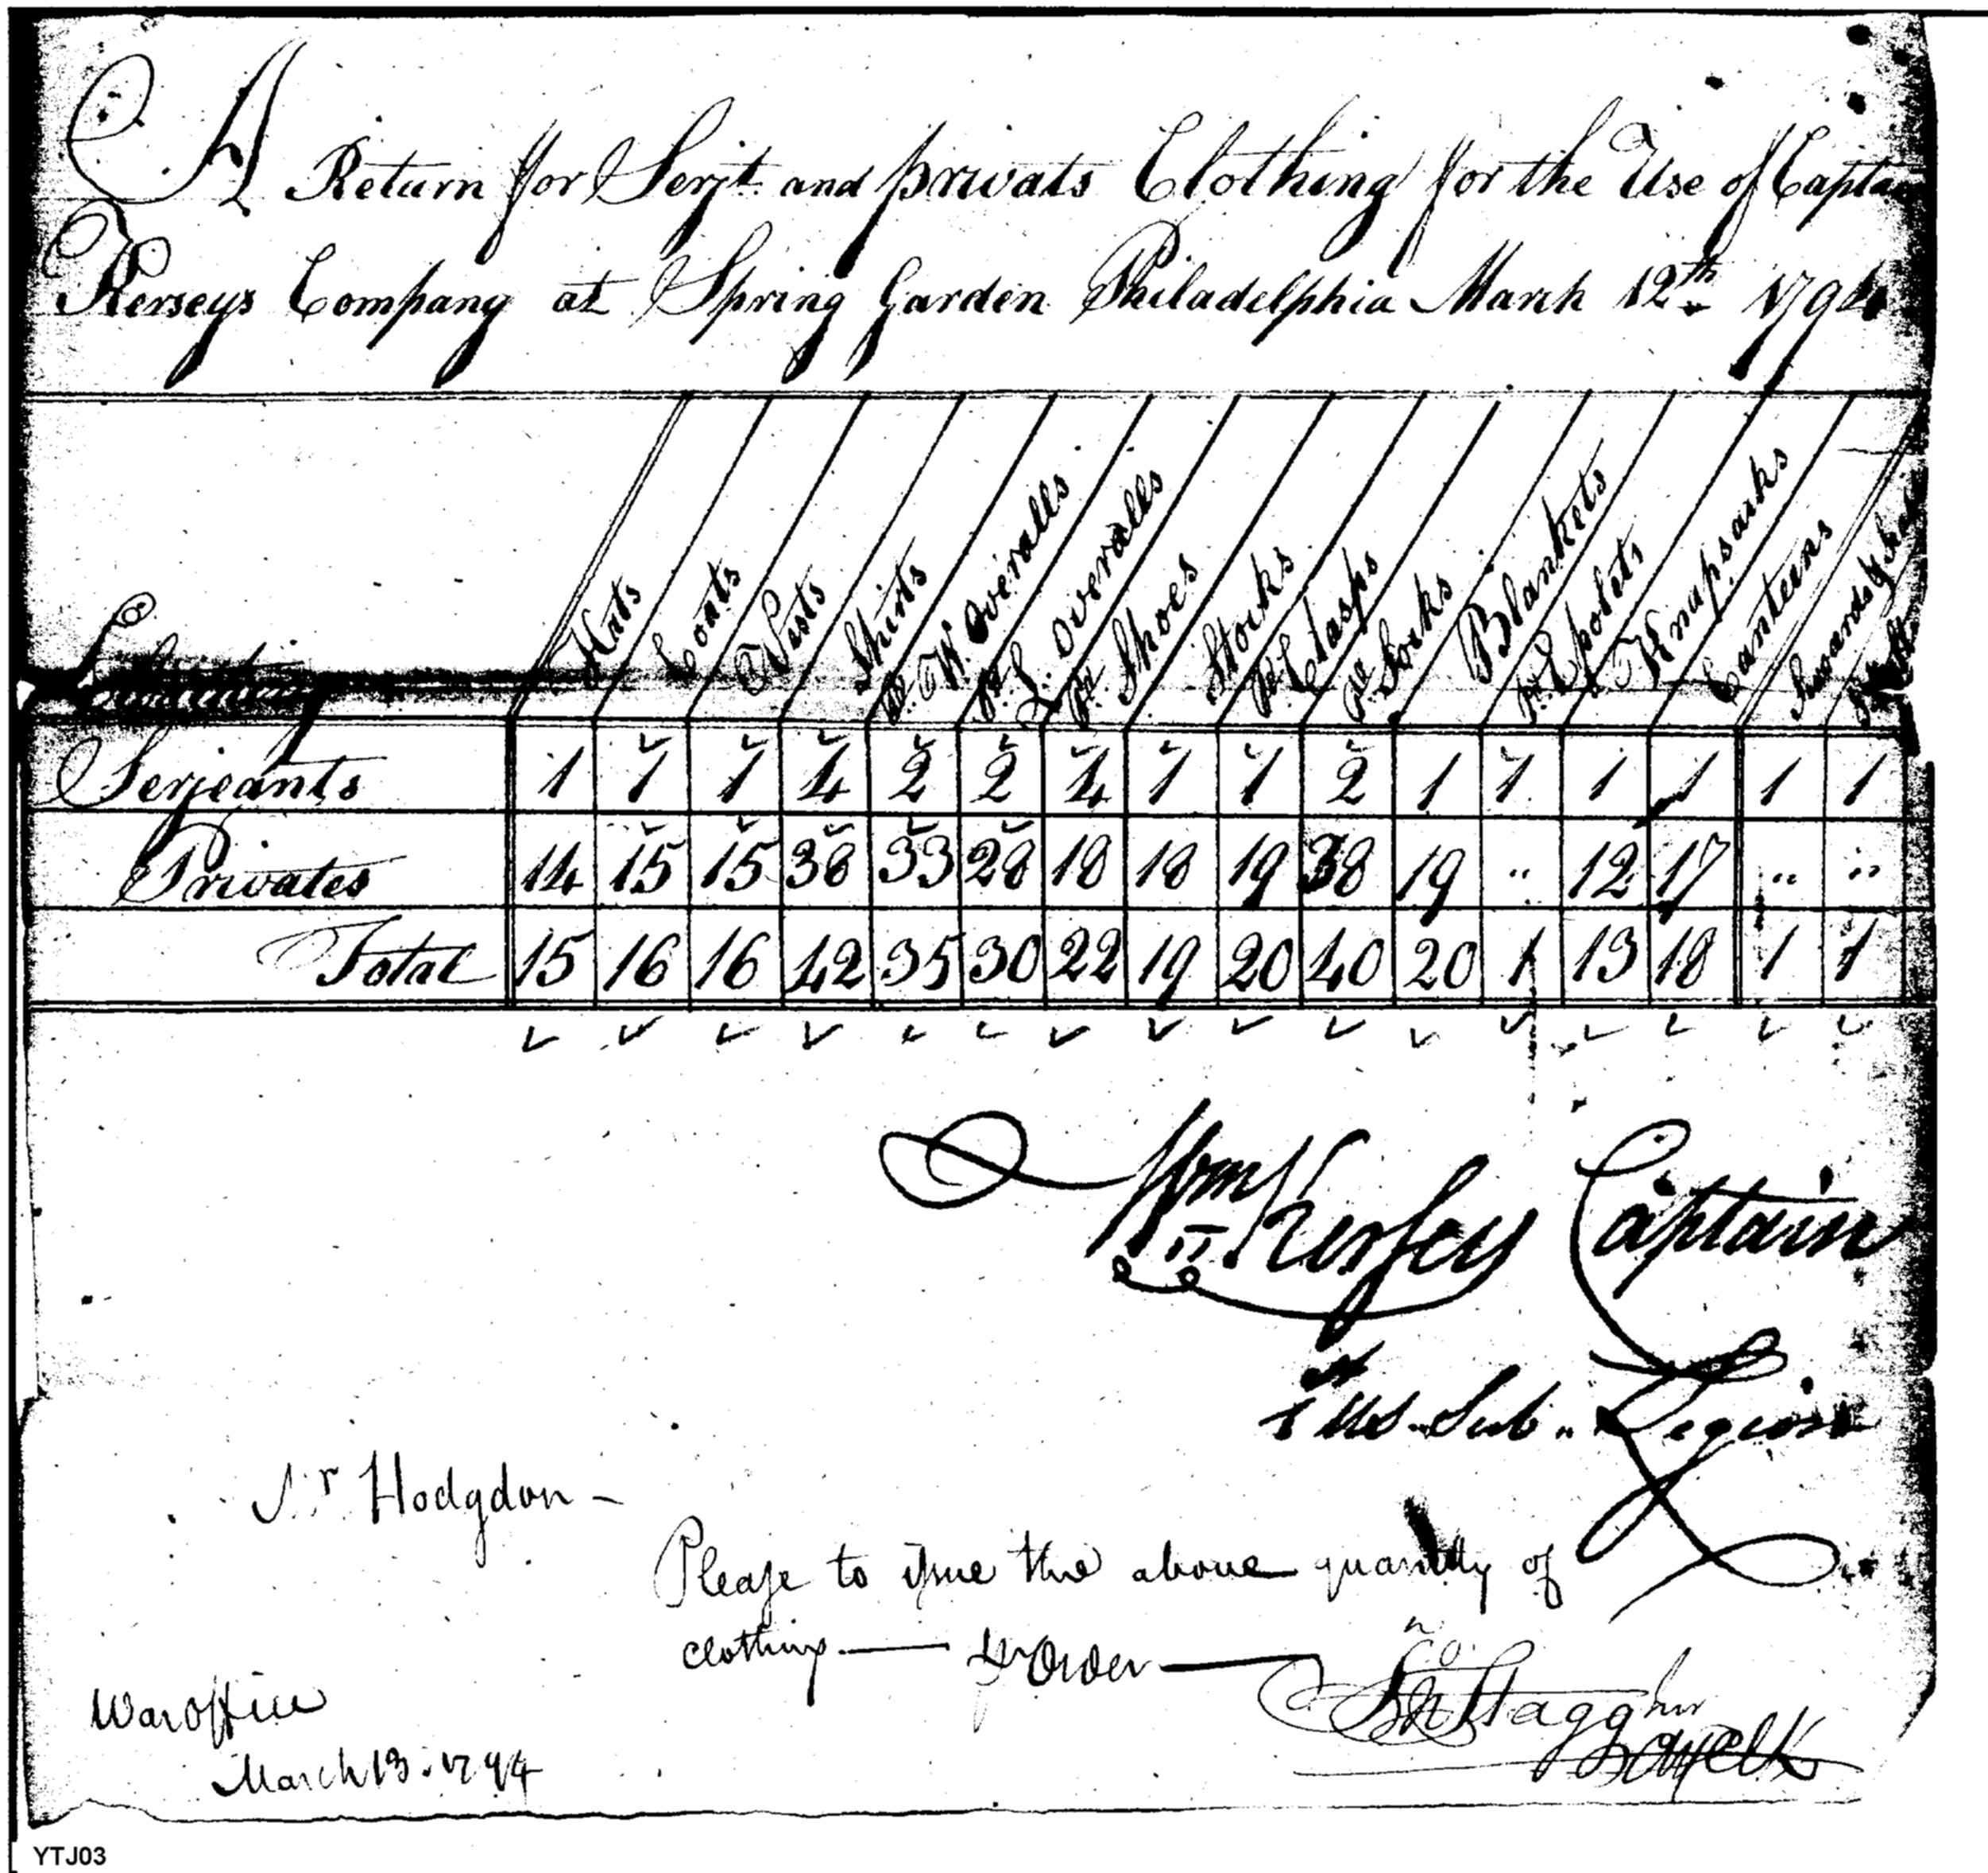 A Return for Serjt. and privats Clothing for the Use of Captain
Kerseys Company at Spring Garden Philadelphia March 12th 1794
Hats Coats Vests Shirts pr. W. Overalls pr. L. Overalls pr. Shoes Stocks pr. Clasps pr. Socks Blankets pr. Epolets Knapsacks Canteens
Serjeants 1 1 1 4 2 2 4 1 1 2 1 1 1 1 1 1
Privates 14 15 15 38 33 28 18 18 19 38 19 " 12 17 " "
Total 15 16 16 42 35 30 22 19 20 40 20 1 13 18 1 1
Wm Kersey Captain
Sub-Legion
Sr Hodgdon -
Please to issue the above quantity of
clothing — pr Order —
Jno Stagg Jnr
War Office
March 13. 1794
YTJ03